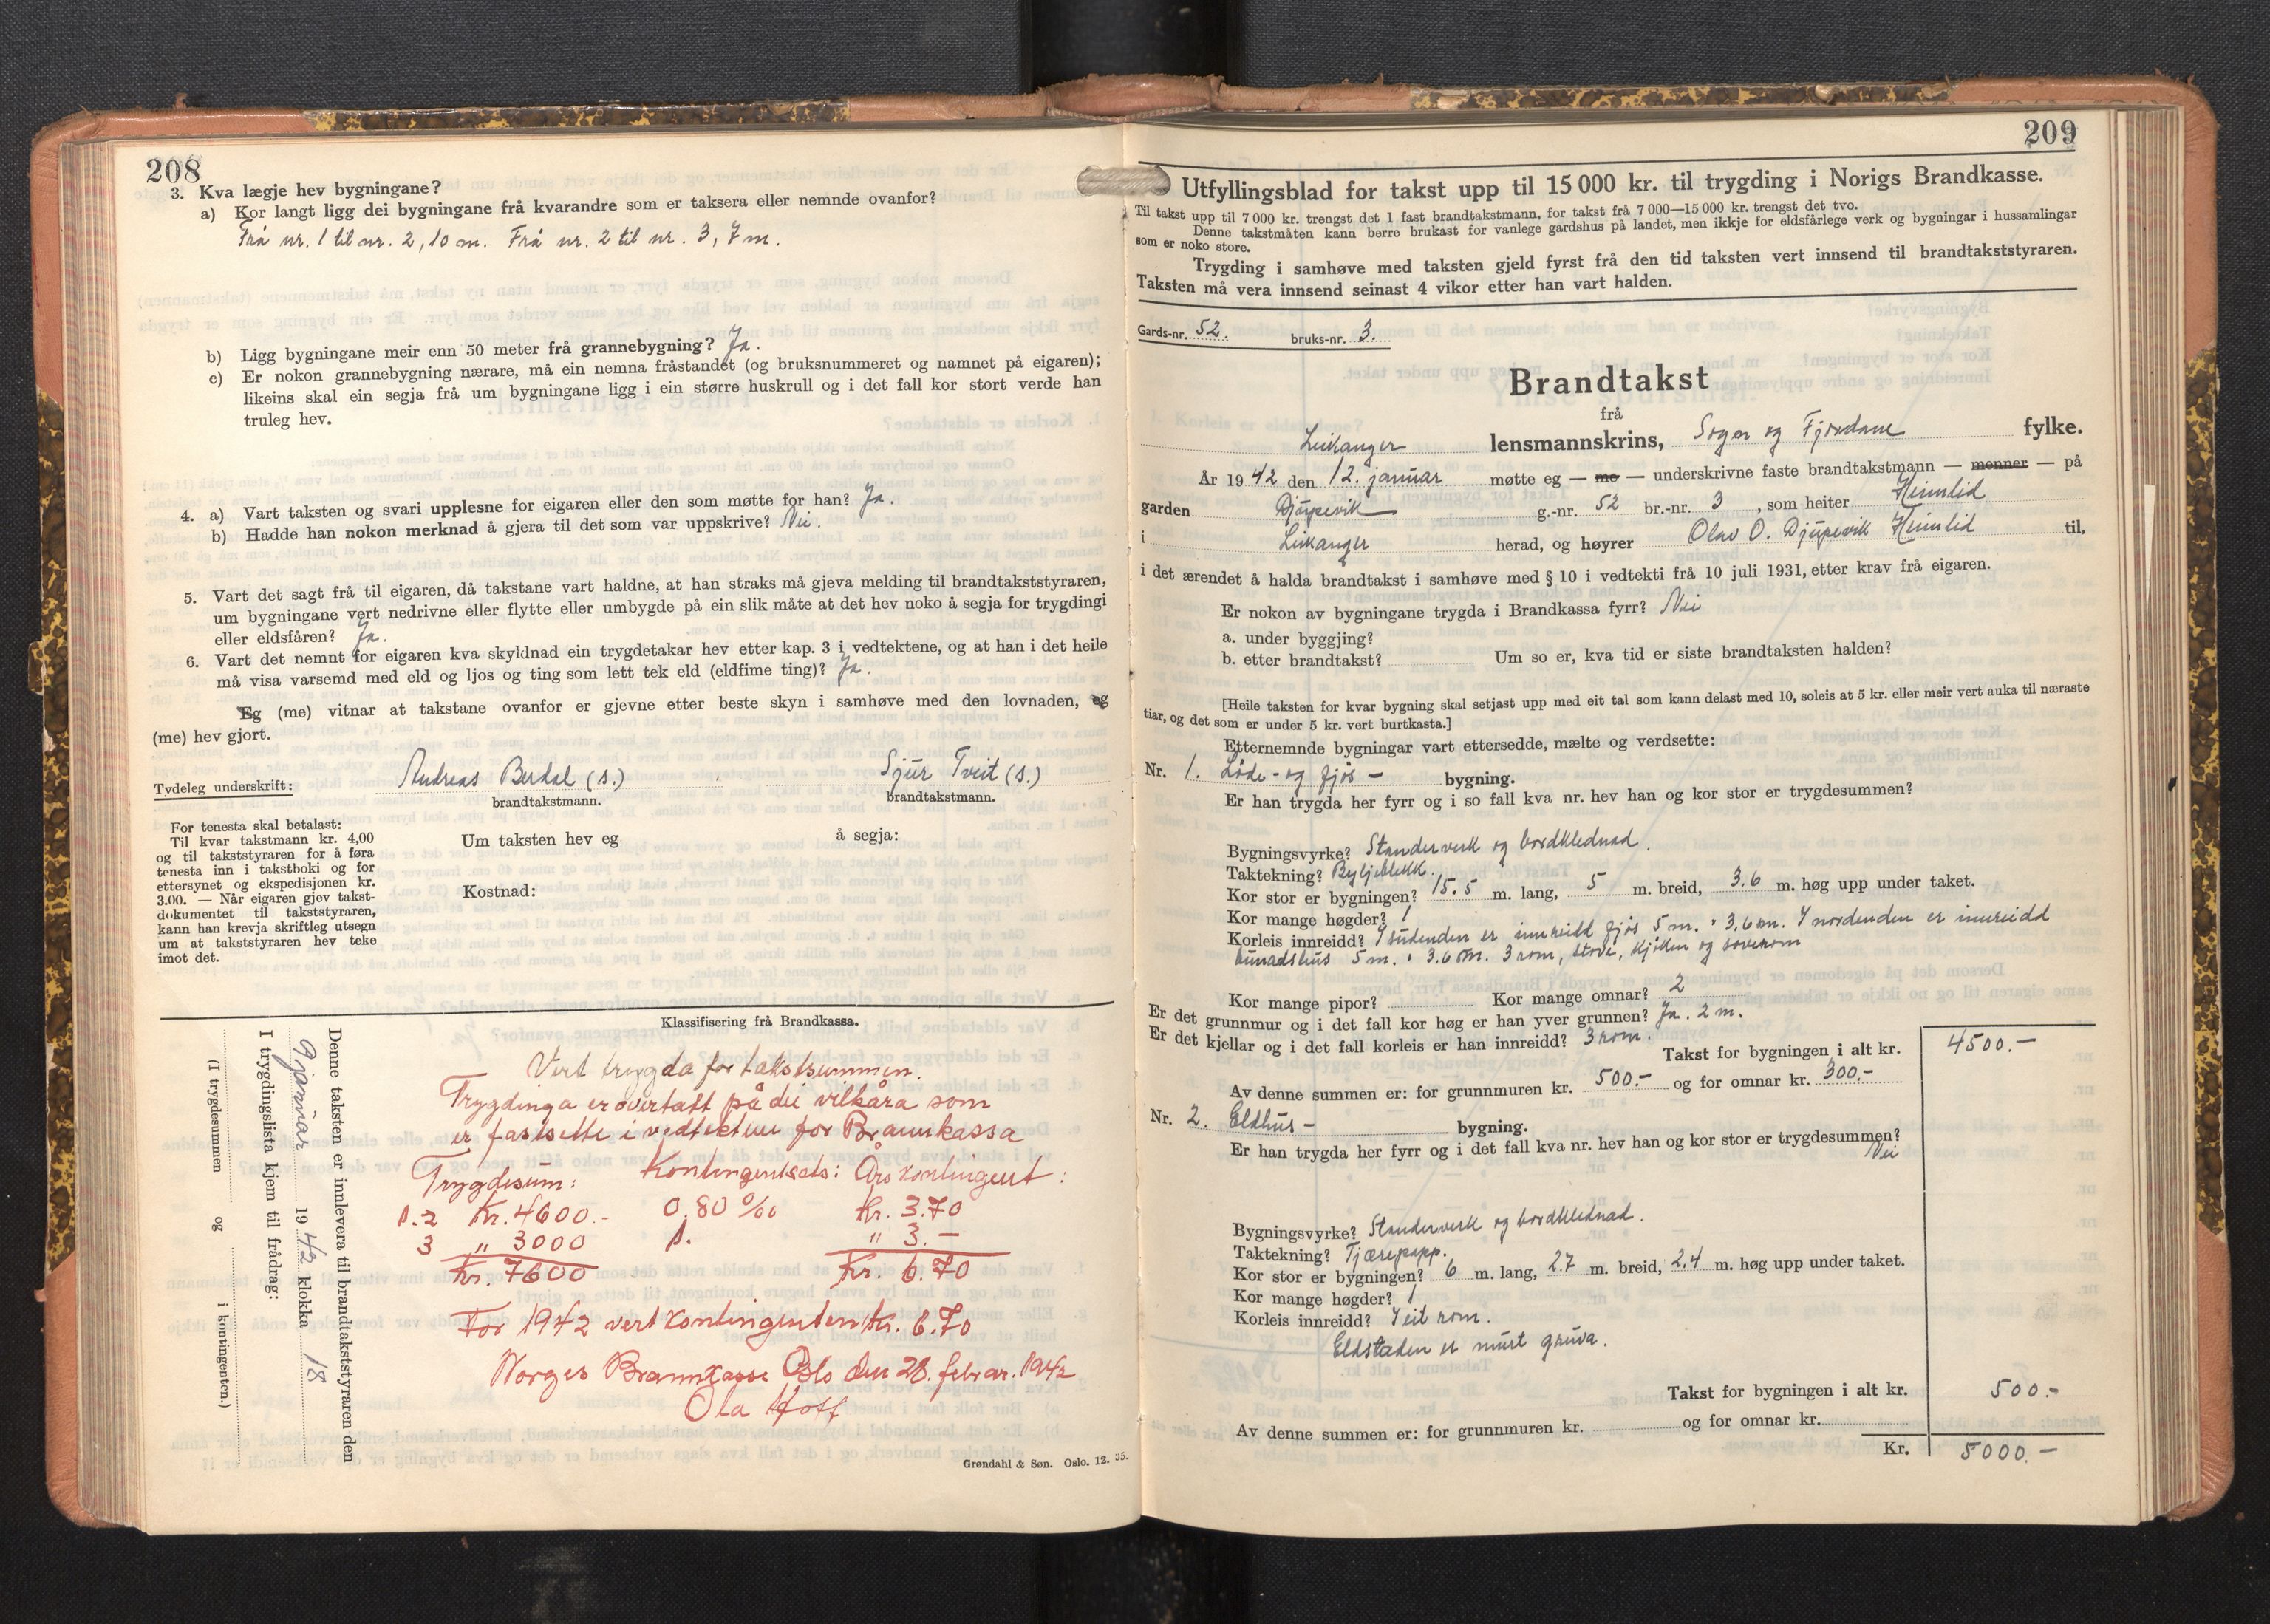 208
3. Kva lægje hev bygningane?
a) Kor langt ligg dei bygningane frå kvarandre som er taksera eller nemnde ovanfor?
Frå nr. 1 til nr. 2, 10 m. Frå nr. 2 til nr. 3, 7 m.
b) Ligg bygningane meir enn 50 meter frå grannebygning? Ja.
c) Er nokon grannebygning nærare, må ein nemna fråstandet (og bruksnummeret og namnet på eigaren);
likeins skal ein segja frå um bygningane ligg i ein større huskrull og i det fall kor stort verde han
truleg hev.
4. a) Vart taksten og svari upplesne for eigaren eller den som møtte for han? Ja.
b) Hadde han nokon merknad å gjera til det som var uppskrive? Nei.
5. Vart det sagt frå til eigaren, då takstane vart haldne, at han straks må gjeva melding til brandtakststyraren,
um bygningane vert nedrivne eller flytte eller umbygde på ein slik måte at det hev noko å segja for trygdingi
eller eldsfåren? Ja.
6. Vart det nemnt for eigaren kva skyldnad ein trygdetakar hev etter kap. 3 i vedtektene, og at han i det heile
må visa varsemd med eld og ljos og ting som lett tek eld (eldfime ting)? Ja.
Eg (me) vitnar at takstane ovanfor er gjevne etter beste skyn i samhøve med den lovnaden, eg
(me) hev gjort.
Tydeleg underskrift: Andreas Berdal (s.) Sjur Tveit (s.)
brandtakstmann. brandtakstmann.
For tenesta skal betalast:
Til kvar takstmann kr. 4,00
og til takststyraren for å føra
tenesta inn i takstboki og for
ettersynet og ekspedisjonen kr.
3.00. — Når eigaren gjev takst-
dokumentet til takststyraren,
kann han krevja skriftleg utsegn
um at takststyraren hev teke
imot det.
Um taksten hev eg å segja:
Kostnad:
Denne taksten er innlevera til brandtakststyraren den
9 januar 1942 klokka 18
I trygdingslista kjem til frådrag:
(I trygdesummen og i kontingenten.)
Klassifisering frå Brandkassa.
Vert trygda for takstsummen.
Trygdinga er overtatt på dei vilkåra som
er fastsette i vedtektene for Brannkassa
Trygdesum: Kontingentsats: Års kontingent:
1.2 Kr. 4600.- 0.80 ‰ Kr. 3.70
3 " 3000 1. " 3.-
Kr. 7600 Kr. 6.70
For 1942 vert kontingenten kr. 6.70
Norges Brannkasse Oslo den 28. februar. 1942
Ola Hoff
Grøndahl & Søn. Oslo. 12. 35.
209
Utfyllingsblad for takst upp til 15 000 kr. til trygding i Norigs Brandkasse.
Til takst upp til 7 000 kr. trengst det 1 fast brandtakstmann, for takst frå 7 000—15 000 kr. trengst det tvo.
Denne takstmåten kann berre brukast for vanlege gardshus på landet, men ikkje for eldsfårlege verk og bygningar i hussamlingar
som er noko store.
Trygding i samhøve med taksten gjeld fyrst frå den tid taksten vert innsend til brandtakststyraren.
Taksten må vera innsend seinast 4 vikor etter han vart halden.
Gards-nr. 52. bruks-nr. 3.
Brandtakst
frå
Leikanger lensmannskrins, Sogn og Fjordane fylke.
År 1942 den 12. januar møtte eg — me — underskrivne faste brandtakstmann — menner — på
garden Djupevik g.-nr. 52 br.-nr. 3, som heiter Heimlid
i Leikanger herad, og høyrer Olav O. Djupevik Heimlid til,
i det ærendet å halda brandtakst i samhøve med § 10 i vedtekti frå 10 juli 1931, etter krav frå eigaren.
Er nokon av bygningane trygda i Brandkassa fyrr? Nei
a. under byggjing?
b. etter brandtakst? Um so er, kva tid er siste brandtaksten halden?
[Heile taksten for kvar bygning skal setjast upp med eit tal som kann delast med 10, soleis at 5 kr. eller meir vert auka til næraste
tiar, og det som er under 5 kr. vert burtkasta.]
Etternemnde bygningar vart ettersedde, mælte og verdsette:
Nr. 1. Løde- og fjøs- bygning.
Er han trygda her fyrr og i so fall kva nr. hev han og kor stor er trygdesummen?
Bygningsvyrke? Standerverk og bordklednad.
Taktekning? Bylgjeblekk.
Kor stor er bygningen? 15.5 m. lang, 5 m. breid, 3.6 m. høg upp under taket.
Kor mange høgder? 1
Korleis innreidd? I sudenden er innreidd fjøs 5 m. × 3.6 m. I nordenden er innreidd
bunadshus 5 m. × 3.6 m. 3 rom, stove, kjøken og soverom
Kor mange pipor? Kor mange omnar? 2
Er det grunnmur og i det fall kor høg er han yver grunnen? Ja. 2 m.
Er det kjellar og i det fall korleis er han innreidd? 3 rom.
Takst for bygningen i alt kr. 4500.-
Av denne summen er: for grunnmuren kr. 500.- og for omnar kr. 300.-
Nr. 2. Eldhus- bygning.
Er han trygda her fyrr og i det fall kva nr. hev han og kor stor er trygdesummen?
Nei
Bygningsvyrke? Standerverk og bordklednad.
Taktekning? Tjærepapp.
Kor stor er bygningen? 6 m. lang, 2.7 m. breid, 2.4 m. høg upp under taket.
Kor mange høgder? 1
Korleis innreidd? I eit rom.
Eldstaden er murt gruva.
Takst for bygningen i alt kr. 500.-
Av denne summen er: for grunnmuren kr. og for omnar kr.
Kr. 5000.-